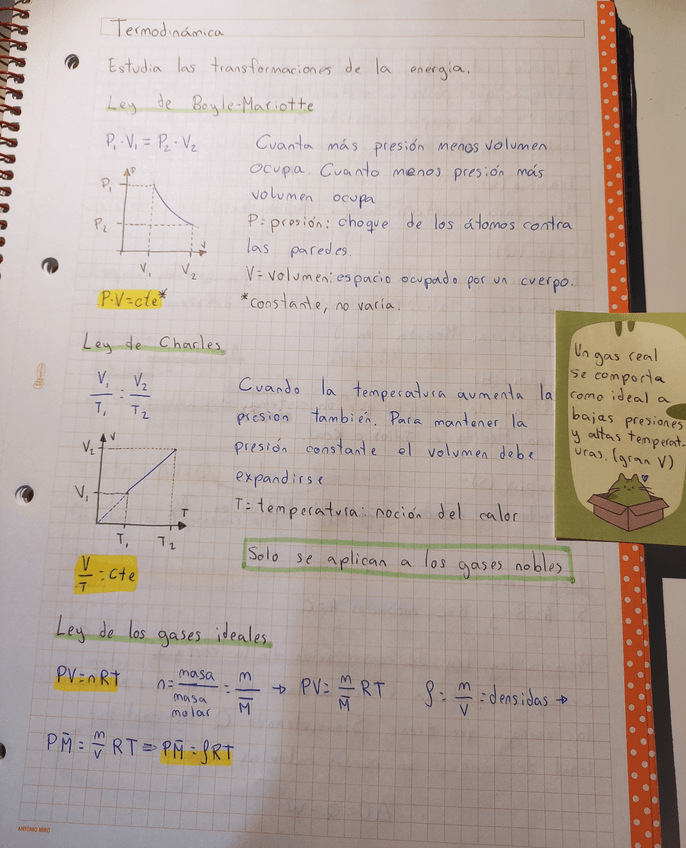 Termodinámica
Estudia las transformaciones de la energía.
Ley de Boyle-Mariotte
P₁·V₁ = P₂·V₂
Cuanta más presión menos volumen
ocupa. Cuanto menos presión más
volumen ocupa
P = presión: choque de los átomos contra
las paredes.
V = volumen: espacio ocupado por un cuerpo.
*constante, no varía.
P
P₁
P₂
V₁ V₂
V
P·V = cte*
Ley de Charles
V₁/T₁ = V₂/T₂
Cuando la temperatura aumenta la
presión también. Para mantener la
presión constante el volumen debe
expandirse
T = temperatura: noción del calor
V
V₂
V₁
T
T₁ T₂
V/T = Cte
Solo se aplican a los gases nobles
Un gas real
se comporta
como ideal a
bajas presiones
y altas temperat-
uras. (gran V)
Ley de los gases ideales
PV = nRT n = masa/masa molar = m/M̄ → PV = m/M̄ RT ρ = m/V = densidas →
PM̄ = m/V RT ⇒ PM̄ = ρRT
ANTONIO MIRO